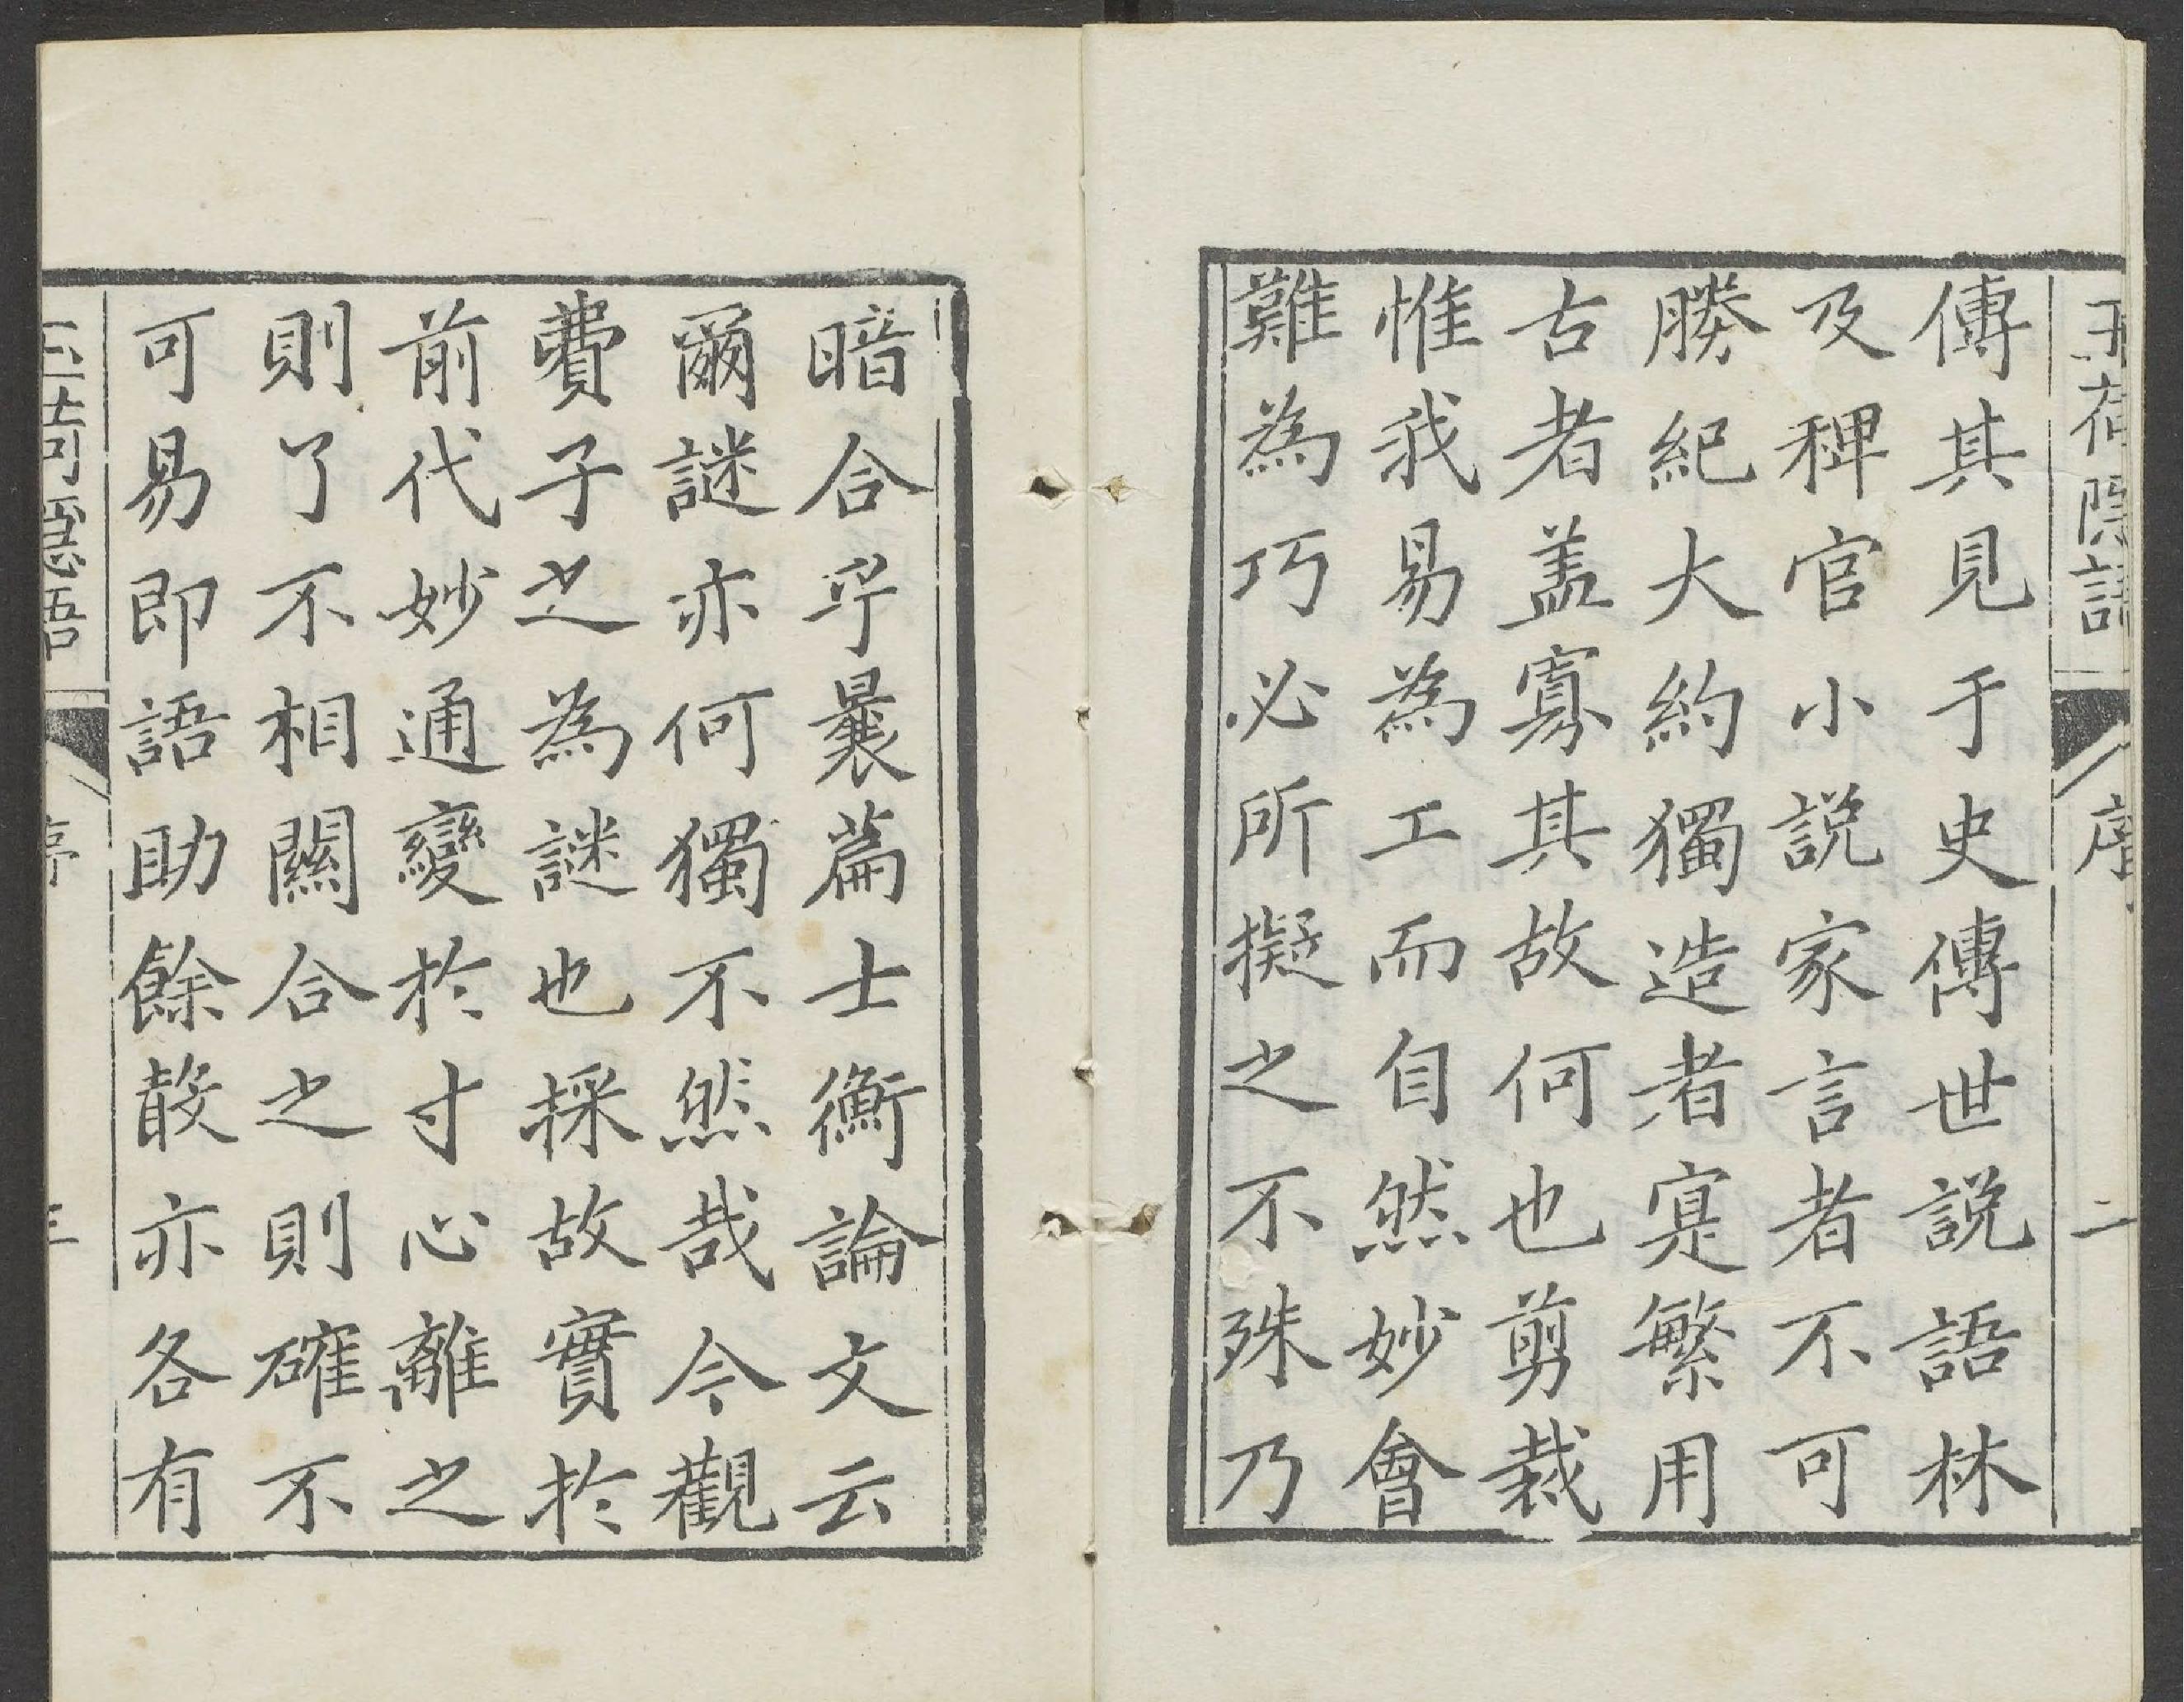 傳其見于史傳世說語林
及稗官小說家言者不可
勝紀大約獨造者寔繁用
古者盖寡其故何也剪裁
惟我易為工而自然妙會
難為巧必所擬之不殊乃
暗合乎曩篇士衡論文云
爾謎亦何獨不然哉今觀
費子之為謎也採故實於
前代妙通變於寸心離之
則了不相關合之則確不
可易即語助餘散亦各有
序
二
三